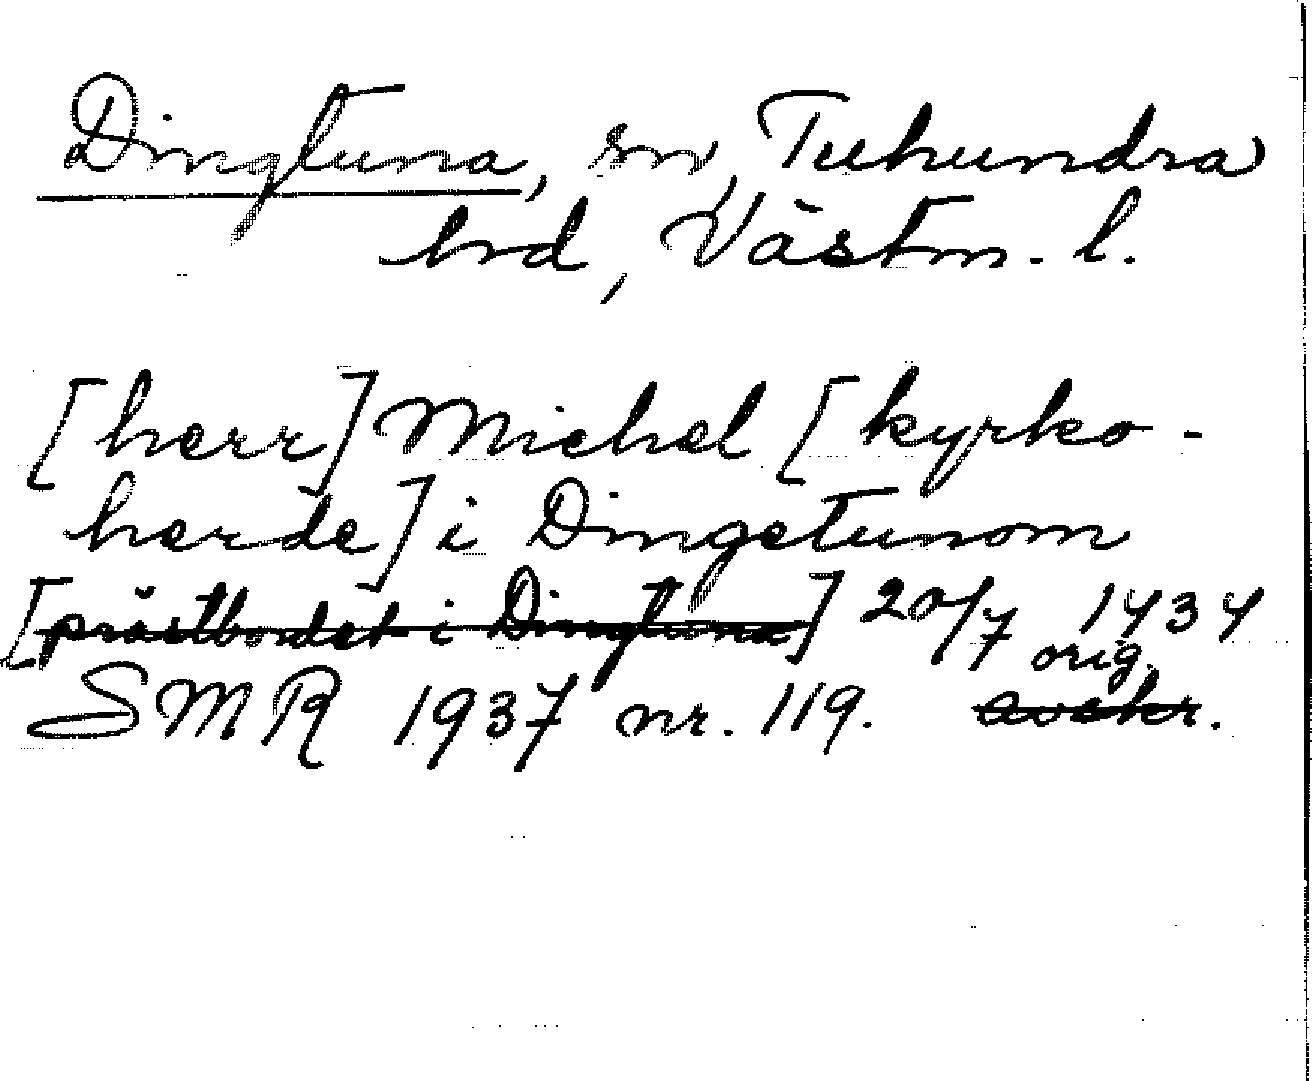 Dingtuna, sn, Tuhundra
hrd, Västm. l.
[herr] Michel [kyrko-
herde] i Dingetunom
[prästbordet i Dingtuna] 20/7 1434
orig.
SMR 1937 nr. 119. avskr.